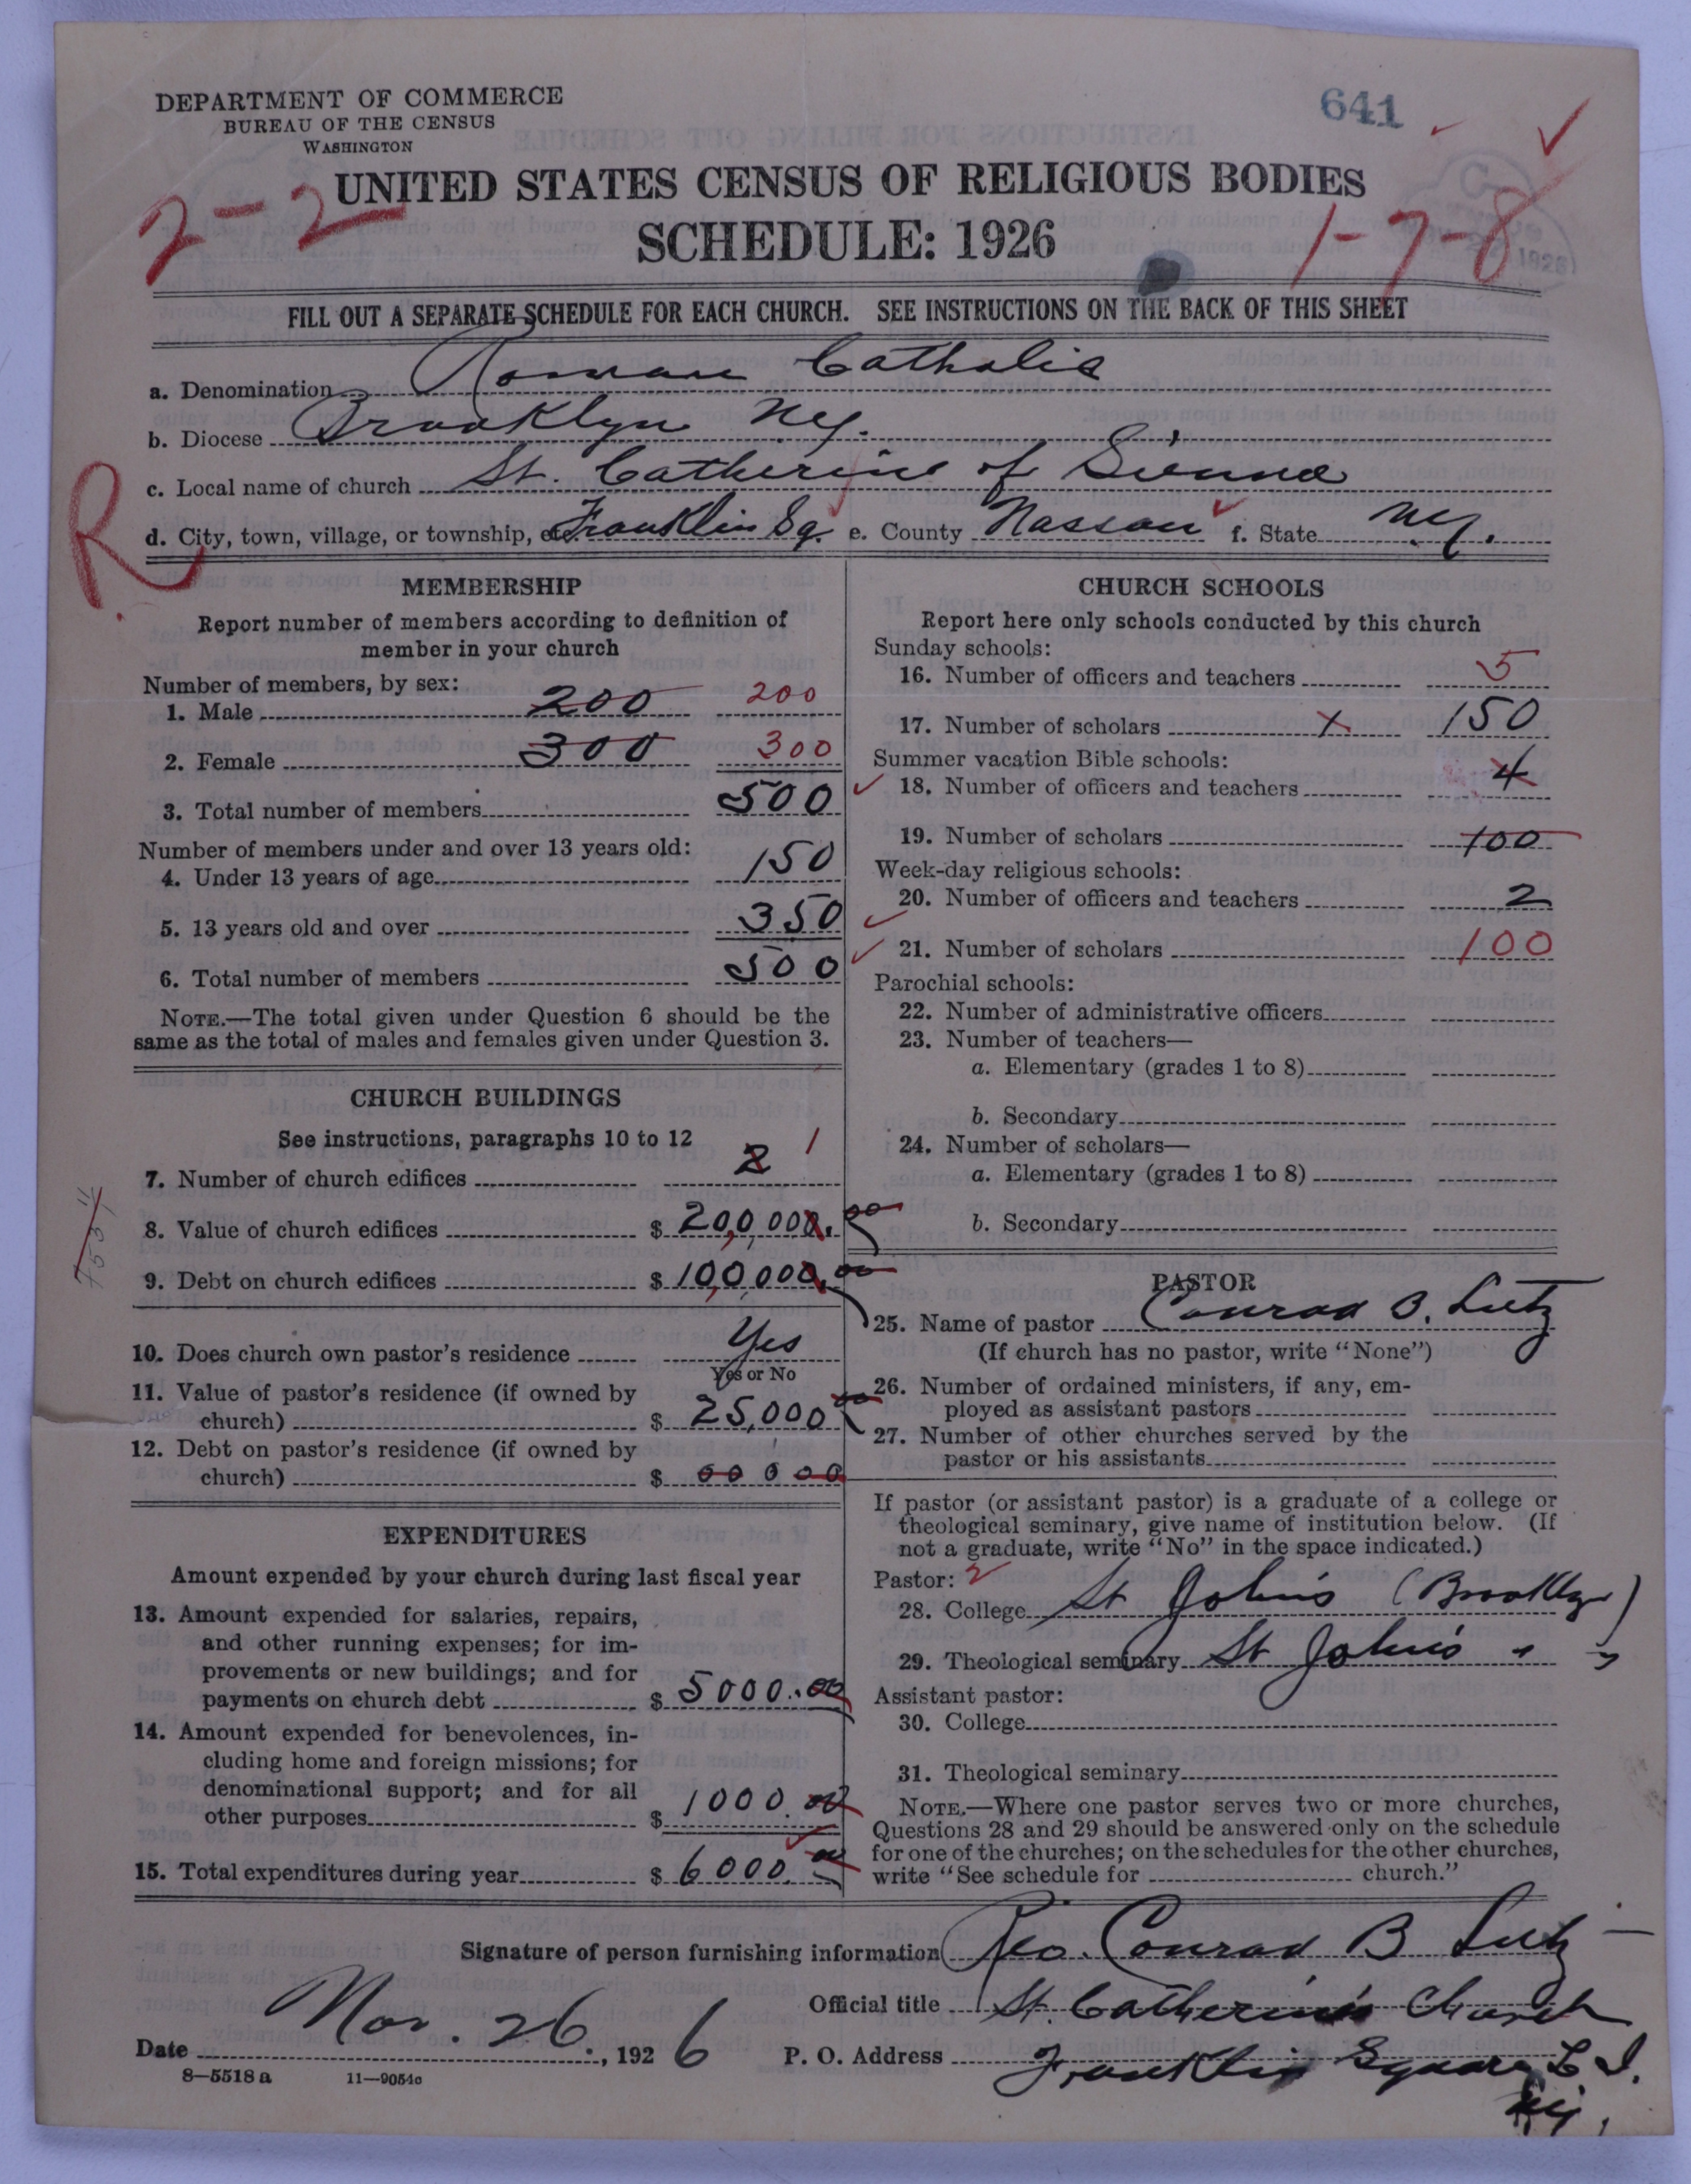 DEPARTMENT OF COMMERCE
BUREAU OF THE CENSUS
WASHINGTON
641
UNITED STATES CENSUS OF RELIGIOUS BODIES
2-2
SCHEDULE: 1926
1-7-8
1926
FILL OUT A SEPARATE SCHEDULE FOR EACH CHURCH. SEE INSTRUCTIONS ON THE BACK OF THIS SHEET
a. Denomination Roman Catholic
b. Diocese Brooklyn N.Y.
c. Local name of church St. Catherine of Sienna
R
d. City, town, village, or township, etc. Franklin Sq. e. County Nassau f. State N.Y.
MEMBERSHIP
Report number of members according to definition of
member in your church
Number of members, by sex:
1. Male 200 200
2. Female 300 300
3. Total number of members 500
Number of members under and over 13 years old:
4. Under 13 years of age 150
5. 13 years old and over 350
6. Total number of members 500
NOTE.—The total given under Question 6 should be the
same as the total of males and females given under Question 3.
CHURCH BUILDINGS
See instructions, paragraphs 10 to 12
7. Number of church edifices 2 1
8. Value of church edifices $ 200,000.00
9. Debt on church edifices $ 100,000.00
10. Does church own pastor's residence Yes
Yes or No
11. Value of pastor's residence (if owned by
church) $ 25,000 00
12. Debt on pastor's residence (if owned by
church) $ 00 0 00
EXPENDITURES
Amount expended by your church during last fiscal year
13. Amount expended for salaries, repairs,
and other running expenses; for im-
provements or new buildings; and for
payments on church debt $ 5000.00
14. Amount expended for benevolences, in-
cluding home and foreign missions; for
denominational support; and for all
other purposes $ 1000.00
15. Total expenditures during year $ 6000.00
CHURCH SCHOOLS
Report here only schools conducted by this church
Sunday schools:
16. Number of officers and teachers 5
17. Number of scholars X 150
Summer vacation Bible schools:
18. Number of officers and teachers 4
19. Number of scholars 100
Week-day religious schools:
20. Number of officers and teachers 2
21. Number of scholars 100
Parochial schools:
22. Number of administrative officers
23. Number of teachers—
a. Elementary (grades 1 to 8)
b. Secondary
24. Number of scholars—
a. Elementary (grades 1 to 8)
b. Secondary
PASTOR
25. Name of pastor Conrad B. Lutz
(If church has no pastor, write "None")
26. Number of ordained ministers, if any, em-
ployed as assistant pastors
27. Number of other churches served by the
pastor or his assistants
If pastor (or assistant pastor) is a graduate of a college or
theological seminary, give name of institution below. (If
not a graduate, write "No" in the space indicated.)
Pastor: 2
28. College St John's (Brooklyn)
29. Theological seminary St John's " "
Assistant pastor:
30. College
31. Theological seminary
NOTE.—Where one pastor serves two or more churches,
Questions 28 and 29 should be answered only on the schedule
for one of the churches; on the schedules for the other churches,
write "See schedule for church."
Signature of person furnishing information Rev. Conrad B Lutz
Official title St. Catherine's Church
Date Nov. 26, 1926 P. O. Address Franklin Square L.I.
N.Y.
8—5518 a 11—9054c